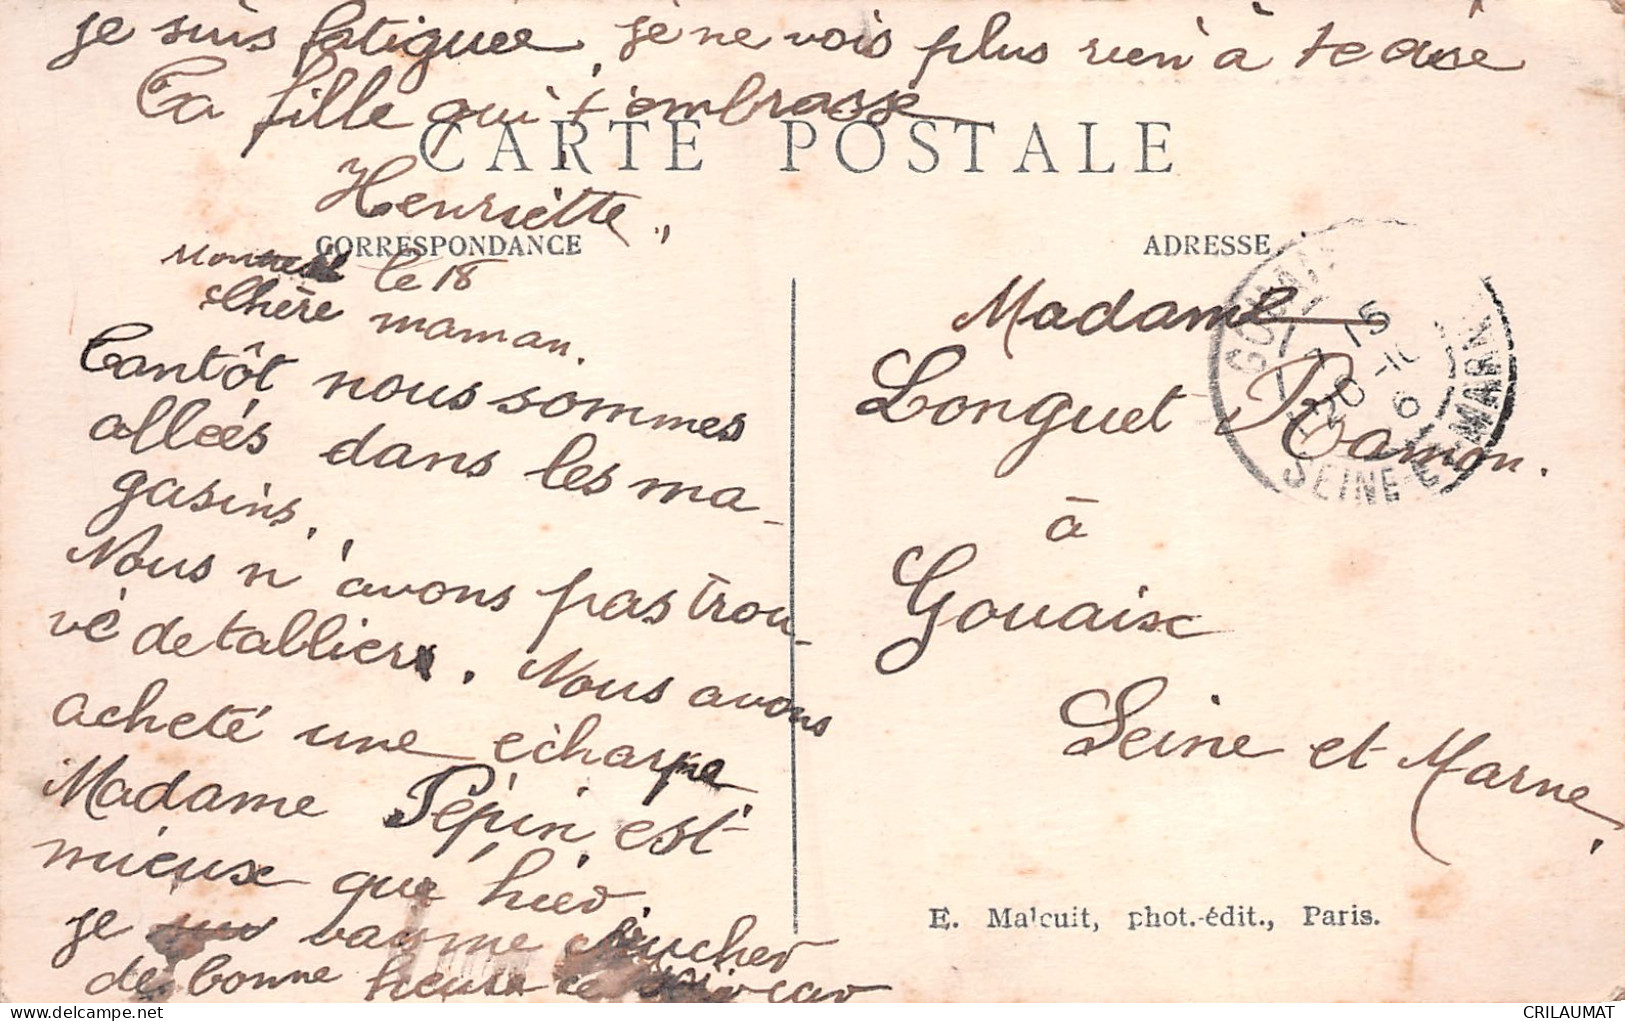 je suis fatiguée, je ne vois plus rien à te dire
Ta fille qui t'embrasse
CARTE POSTALE
Henriette
CORRESPONDANCE
le 18
Chère maman.
Tantôt nous sommes
alleés dans les ma-
gasins.
Nous n'avons pas trou-
vé de tablier. Nous avons
acheté une echarpe
Madame Pépin est
mieux qu'hier.
je vais me coucher
de bonne heure ce soir car
ADRESSE
Madame
Longuet Ramon.
à
Gouaix
Seine et Marne
SEINE-ET-MARNE
E. Malcuit, phot.-édit., Paris.
CRILAUMAT